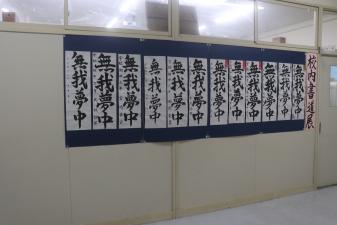 校内書道展
無我夢中
無我夢中
無我夢中
無我夢中
無我夢中
無我夢中
無我夢中
無我夢中
無我夢中
無我夢中
無我夢中
無我夢中